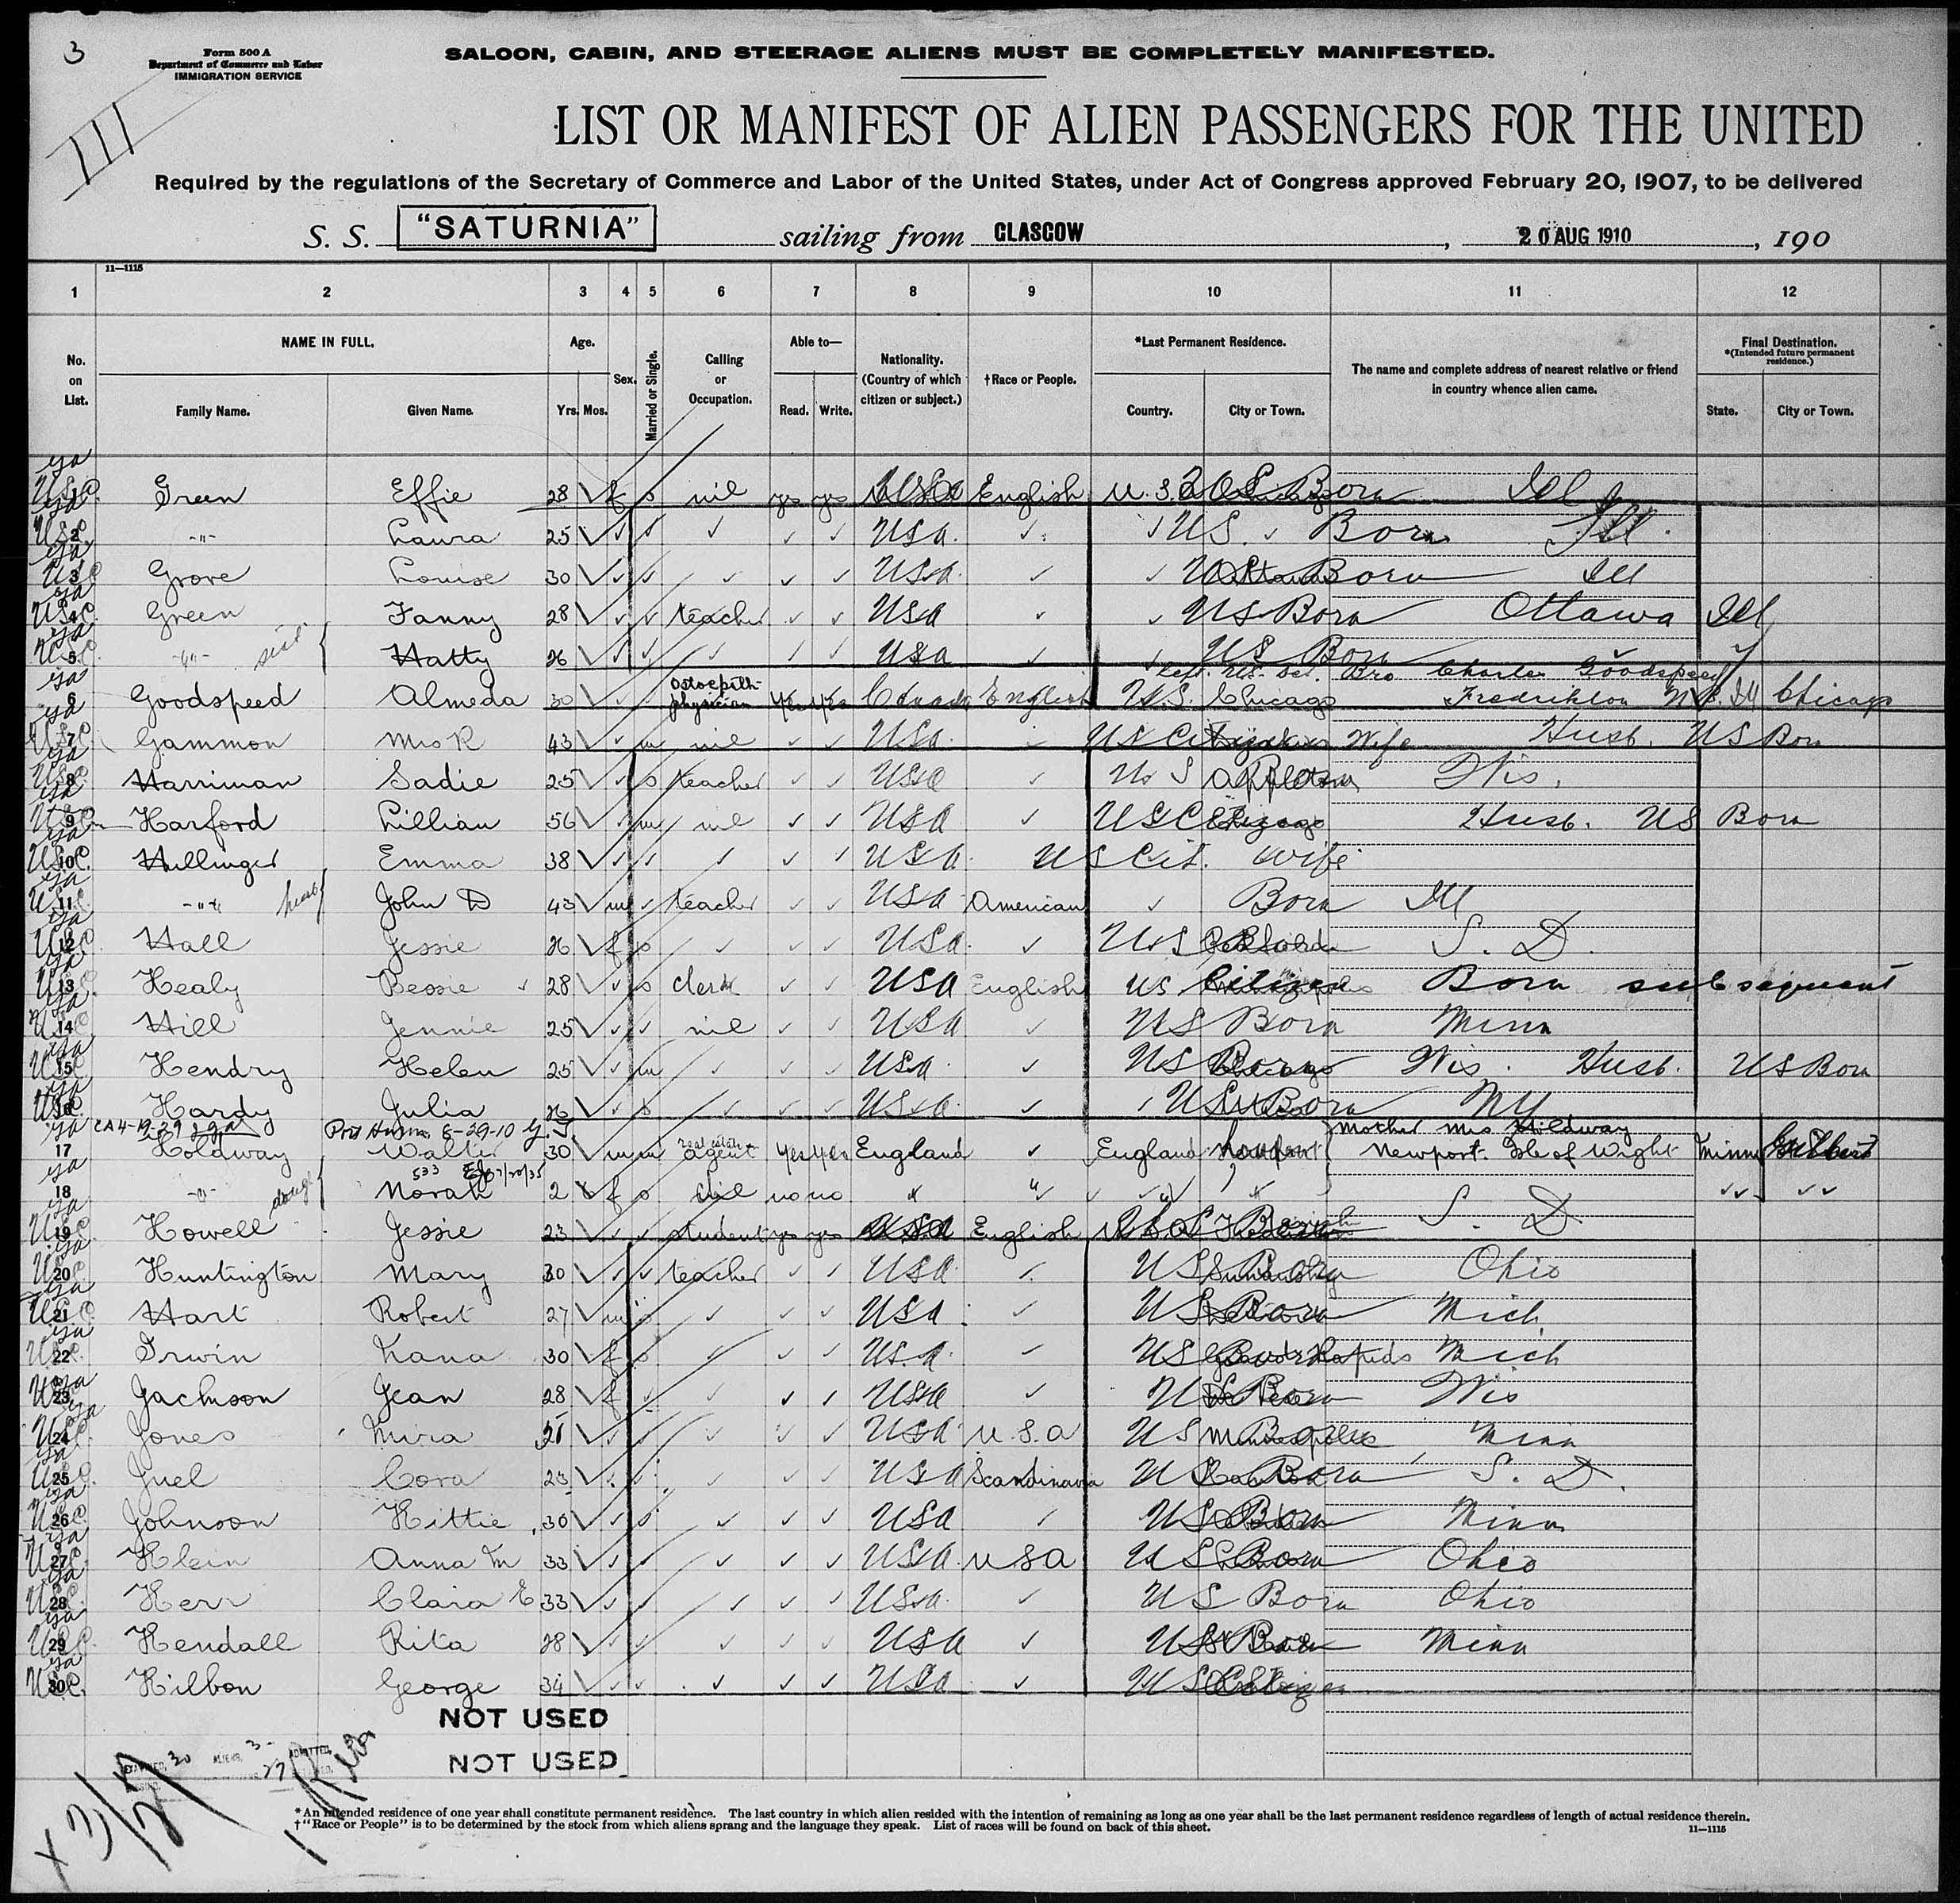 3
Form 500 A
Department of Commerce and Labor
IMMIGRATION SERVICE
SALOON, CABIN, AND STEERAGE ALIENS MUST BE COMPLETELY MANIFESTED.
111
LIST OR MANIFEST OF ALIEN PASSENGERS FOR THE UNITED
Required by the regulations of the Secretary of Commerce and Labor of the United States, under Act of Congress approved February 20, 1907, to be delivered
S. S. "SATURNIA" sailing from GLASGOW, 20 AUG 1910, 190
11—1115
1 2 3 4 5 6 7 8 9 10 11 12
No. on List. NAME IN FULL. Family Name. Given Name. Age. Yrs. Mos. Sex. Married or Single. Calling or Occupation. Able to— Read. Write. Nationality. (Country of which citizen or subject.) †Race or People. *Last Permanent Residence. Country. City or Town. The name and complete address of nearest relative or friend in country whence alien came. Final Destination. *(Intended future permanent residence.) State. City or Town.
1 Green Effie 28 f s nil yes yes USA English U.S.A Born Ill
2 -"- Laura 25 ✓ ✓ ✓ ✓ ✓ USA ✓ ✓ US Born Ill.
3 Grove Louise 30 ✓ ✓ ✓ ✓ ✓ USA ✓ ✓ US Born Ill
4 Green Fanny 28 ✓ ✓ teacher ✓ ✓ USA ✓ ✓ US Born Ottawa Ill
5 -"- sist. Hatty 26 ✓ ✓ ✓ ✓ ✓ USA ✓ ✓ US Born
6 Goodspeed Almeda 30 ✓ ✓ physician yes yes Canada English U.S. Chicago Bro Charles Goodspeed Fredrikton N.B. Ill Chicago
7 Gammon Mrs R 43 ✓ m nil ✓ ✓ USA ✓ US Citizen Wife Husb. US Born
8 Harriman Sadie 25 ✓ s teacher ✓ ✓ USA ✓ U S Appleton Wis.
9 Harford Lillian 56 ✓ m nil ✓ ✓ USA ✓ US Husb. US Born
10 Hullinger Emma 38 ✓ ✓ ✓ ✓ ✓ USA US Cit. Wife
11 -"- husb John D 43 m ✓ teacher ✓ ✓ USA American ✓ Born Ill
12 Hall Jessie 26 f s ✓ ✓ ✓ USA ✓ US S. D.
13 Healy Bessie 28 ✓ s clerk ✓ ✓ USA English US Citizen Born subsequent
14 Hill Jennie 25 ✓ ✓ nil ✓ ✓ USA ✓ US Born Minn
15 Hendry Helen 25 ✓ m ✓ ✓ ✓ USA ✓ US Wis. Husb. US Born
16 Hardy Julia 26 ✓ s ✓ ✓ ✓ USA ✓ ✓ US Born NY
Port Huron 8-29-10
17 Holdway Walter 30 m m real estate agent yes yes England ✓ England Newport Mother Mrs Holdway Newport. Isle of Wight Minn
18 -"- daug Norah 2 f s child no no " " ✓ " " ✓✓ ✓✓
19 Howell Jessie 23 ✓ ✓ student yes yes USA English S. D
20 Huntington Mary 30 ✓ ✓ teacher ✓ ✓ USA ✓ US Born Ohio
21 Hart Robert 27 m ✓ ✓ ✓ USA ✓ US Born Mich
22 Irwin Lana 30 f s ✓ ✓ ✓ USA ✓ US Grand Rapids Mich
23 Jackson Jean 28 f ✓ ✓ ✓ ✓ USA ✓ US Born Wis
24 Jones Mira ✓ ✓ ✓ ✓ ✓ USA U.S.A US Minneapolis Minn
25 Juel Cora 23 ✓ ✓ ✓ ✓ ✓ USA Scandinavia US Born S. D.
26 Johnson Kittie 30 ✓ ✓ ✓ ✓ ✓ USA ✓ US Born Minn
27 Klein Anna M 33 ✓ ✓ ✓ ✓ ✓ USA USA US Born Ohio
28 Kerr Clara E 33 ✓ ✓ ✓ ✓ ✓ USA ✓ US Born Ohio
29 Kendall Rita 28 ✓ ✓ ✓ ✓ ✓ USA ✓ US Born Minn
30 Kilbon George 34 ✓ ✓ ✓ ✓ ✓ USA ✓ US
NOT USED
NOT USED
*An intended residence of one year shall constitute permanent residence. The last country in which alien resided with the intention of remaining as long as one year shall be the last permanent residence regardless of length of actual residence therein.
†"Race or People" is to be determined by the stock from which aliens sprang and the language they speak. List of races will be found on back of this sheet.
11—1115